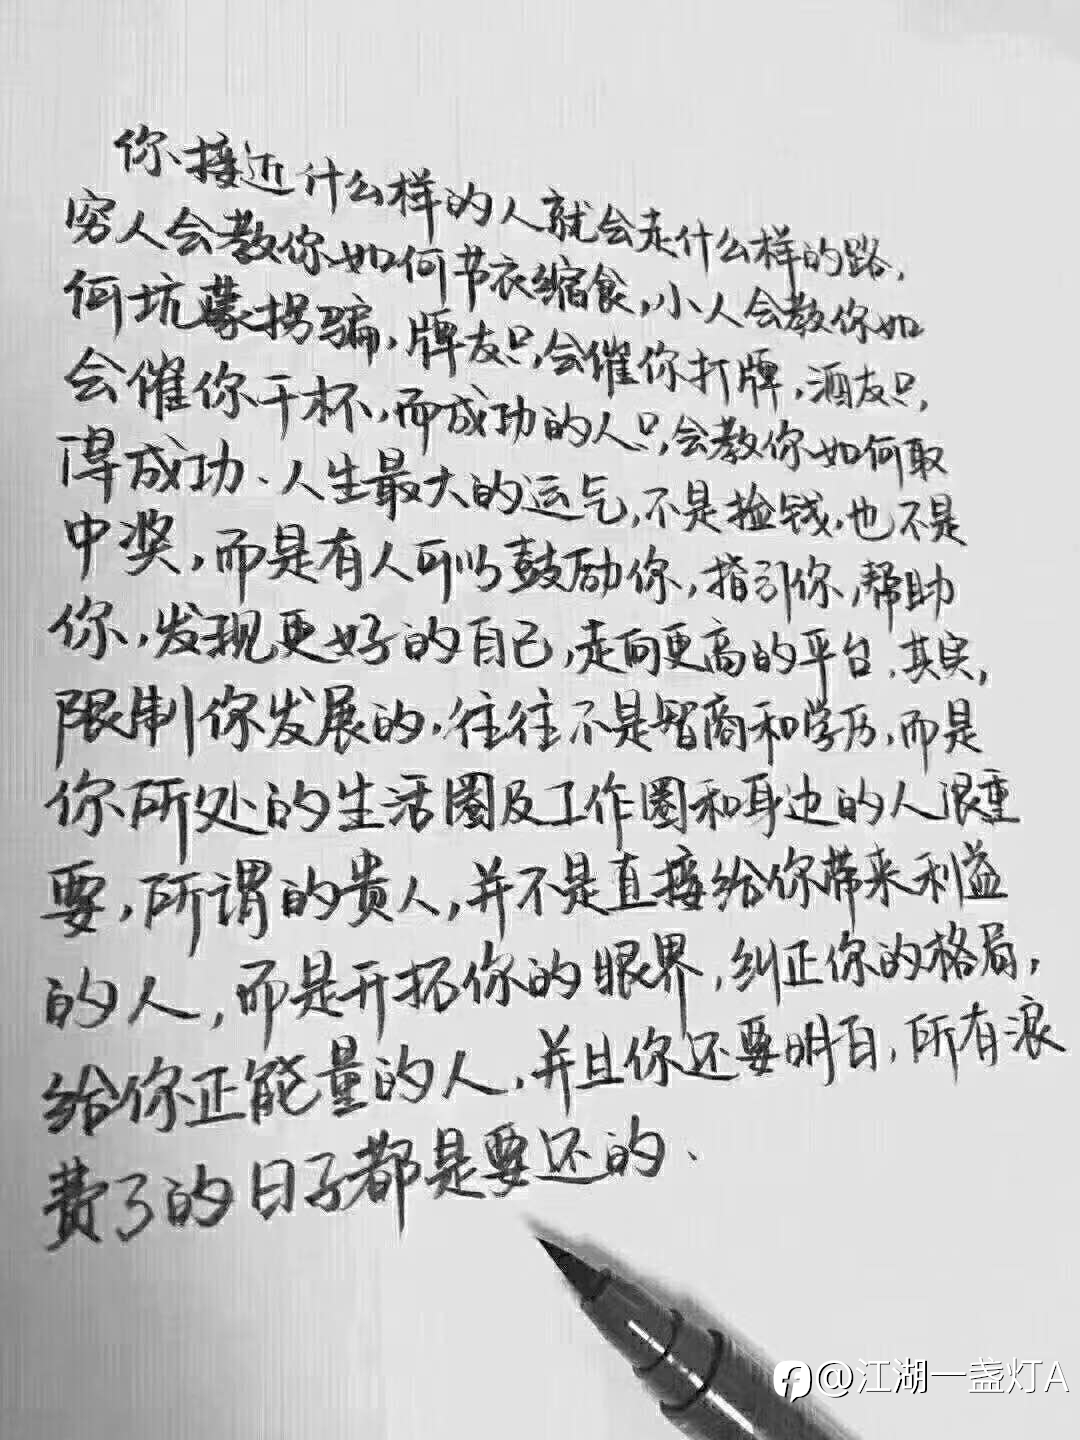 你接近什么样的人就会走什么样的路,
穷人会教你如何节衣缩食,小人会教你如
何坑蒙拐骗,牌友只会催你打牌,酒友只
会催你干杯,而成功的人只会教你如何取
得成功、人生最大的运气,不是捡钱,也不是
中奖,而是有人可以鼓励你,指引你,帮助
你,发现更好的自己,走向更高的平台.其实,
限制你发展的.往往不是智商和学历,而是
你所处的生活圈及工作圈和身边的人很重
要,所谓的贵人,并不是直接给你带来利益
的人,而是开拓你的眼界,纠正你的格局,
给你正能量的人.并且你还要明白,所有浪
费了的日子都是要还的、
@江湖一盏灯A